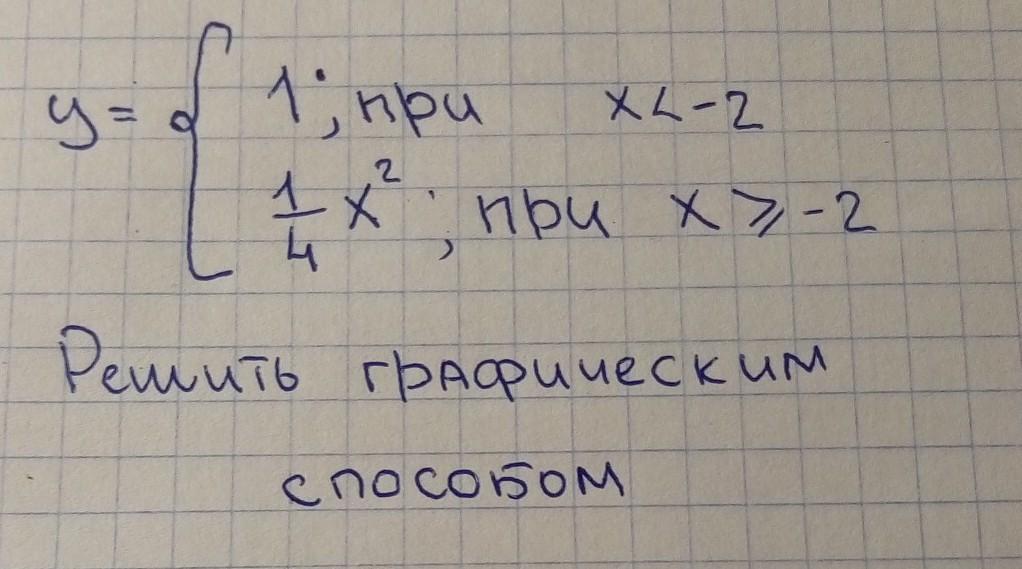 y = { 1; при x < -2
1/4 x²; при x ⩾ -2
Решить графическим
способом